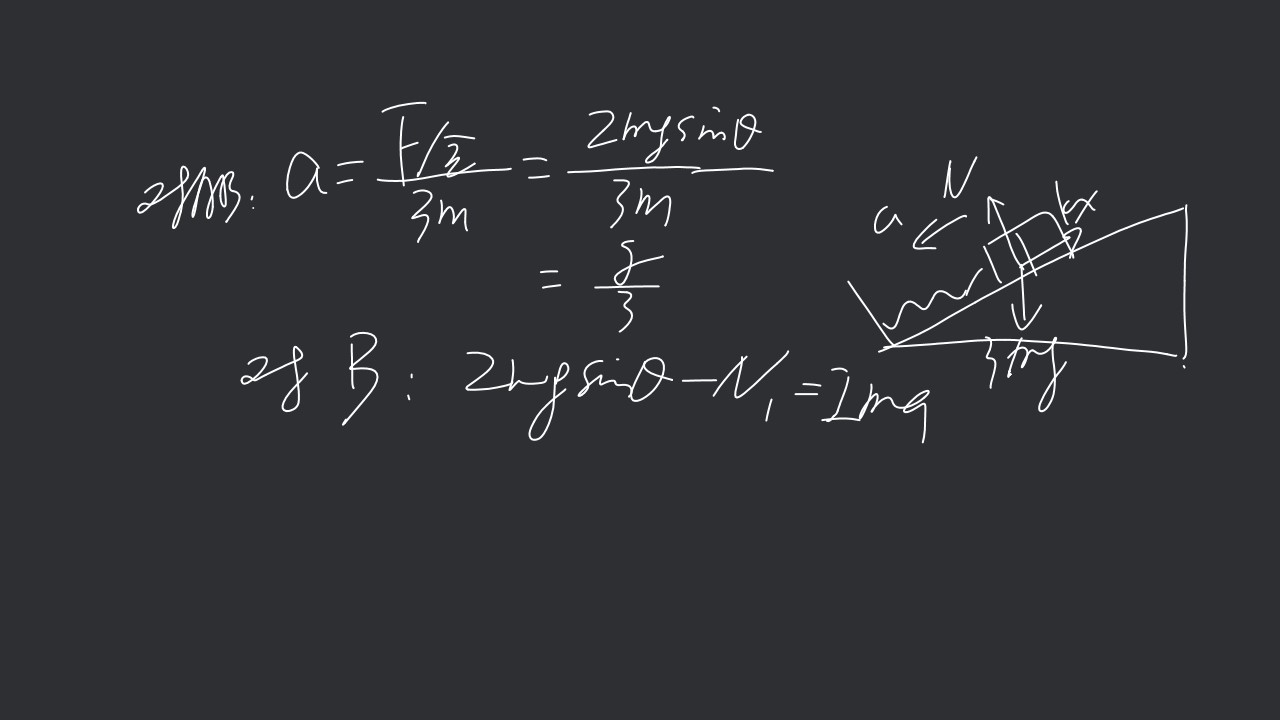 对AB: a = F合/3m = 2mgsinθ/3m
= g/3
对 B: 2mgsinθ - N₁ = 2ma
N
a
kx
3mg